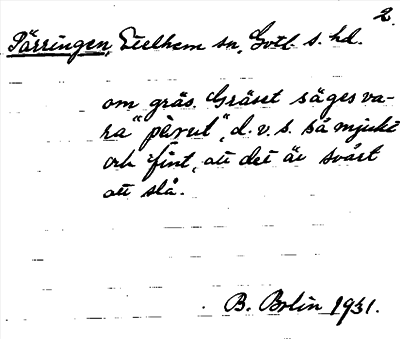 2.
Pärringen, Etelhem sn, Gotl. s. hd.
om gräs. Gräset säges va-
ra "pärut", d. v. s. så mjukt
och fint, att det är svårt
att slå.
B. Bolin 1931.